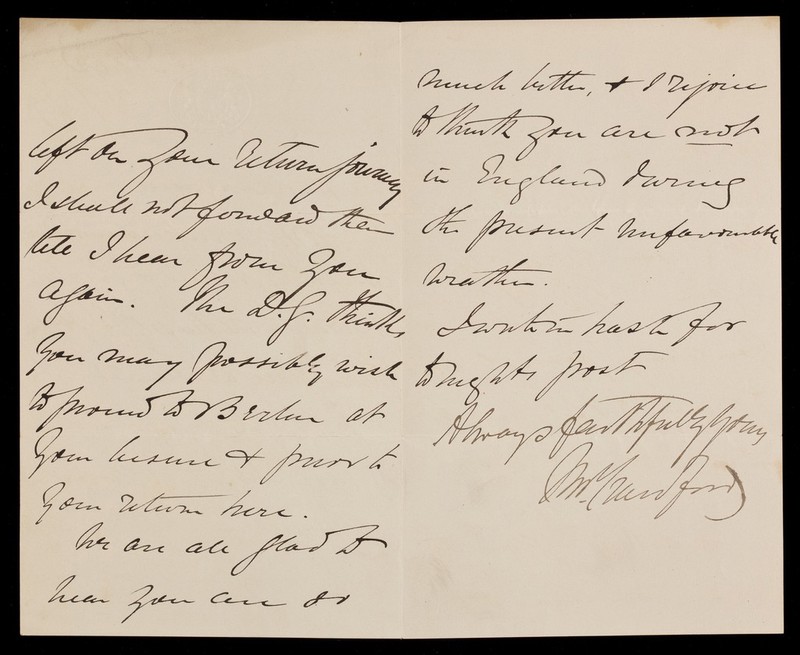 left on your return journey
I shall not forward them
till I hear from you
again. The D.G. thinks
you may possibly wish
to proceed to Berlin at
your leisure & prior to
your return here.
We are all glad to
hear you are so
much better, & I rejoice
to think you are not
in England during
the present unfavourable
weather.
I write in haste for
tonights post
Always faithfully yours
Crawford